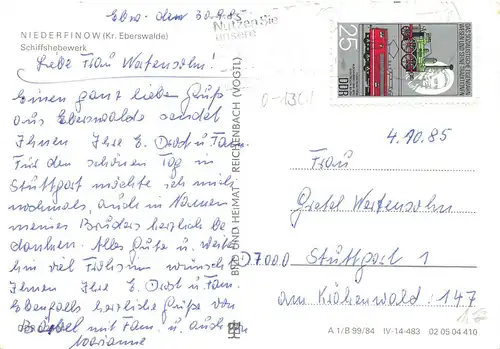 Ebsw. den 30.9.85
NIEDERFINOW (Kr. Eberswalde)
Schiffshebewerk
Liebe Frau Wertensohn!
Einen ganz lieben Gruß
aus Eberswalde sendet
Ihnen Ihre E. Drost u. Fam.
Für den schönen Tag in
Stuttgart möchte ich mich
nochmals, auch in Namen
meines Bruders herzlich be
danken. Alles Gute u. weiter
hin viel Frohsinn wünscht
Ihnen Ihre E. Drost u. Fam.
Ebenfalls herzliche Grüße von
Bärbel mit Fam. u. auch von
Marianne
Nutzen Sie
unsere
BILD UND HEIMAT REICHENBACH (VOGTL)
25
DDR
0-13C1
4.10.85
Frau
Gretel Wertensohn
D7000 Stuttgart 1
am Krähenwald 147
A 1/B 99/84 IV-14-483 02 05 04 410